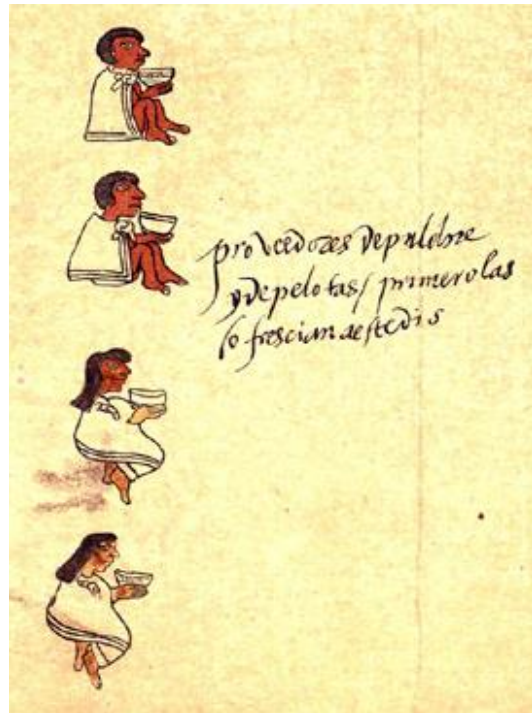 proveedores de pulcre
y de pelotas / primero las
ofrescian a este dios